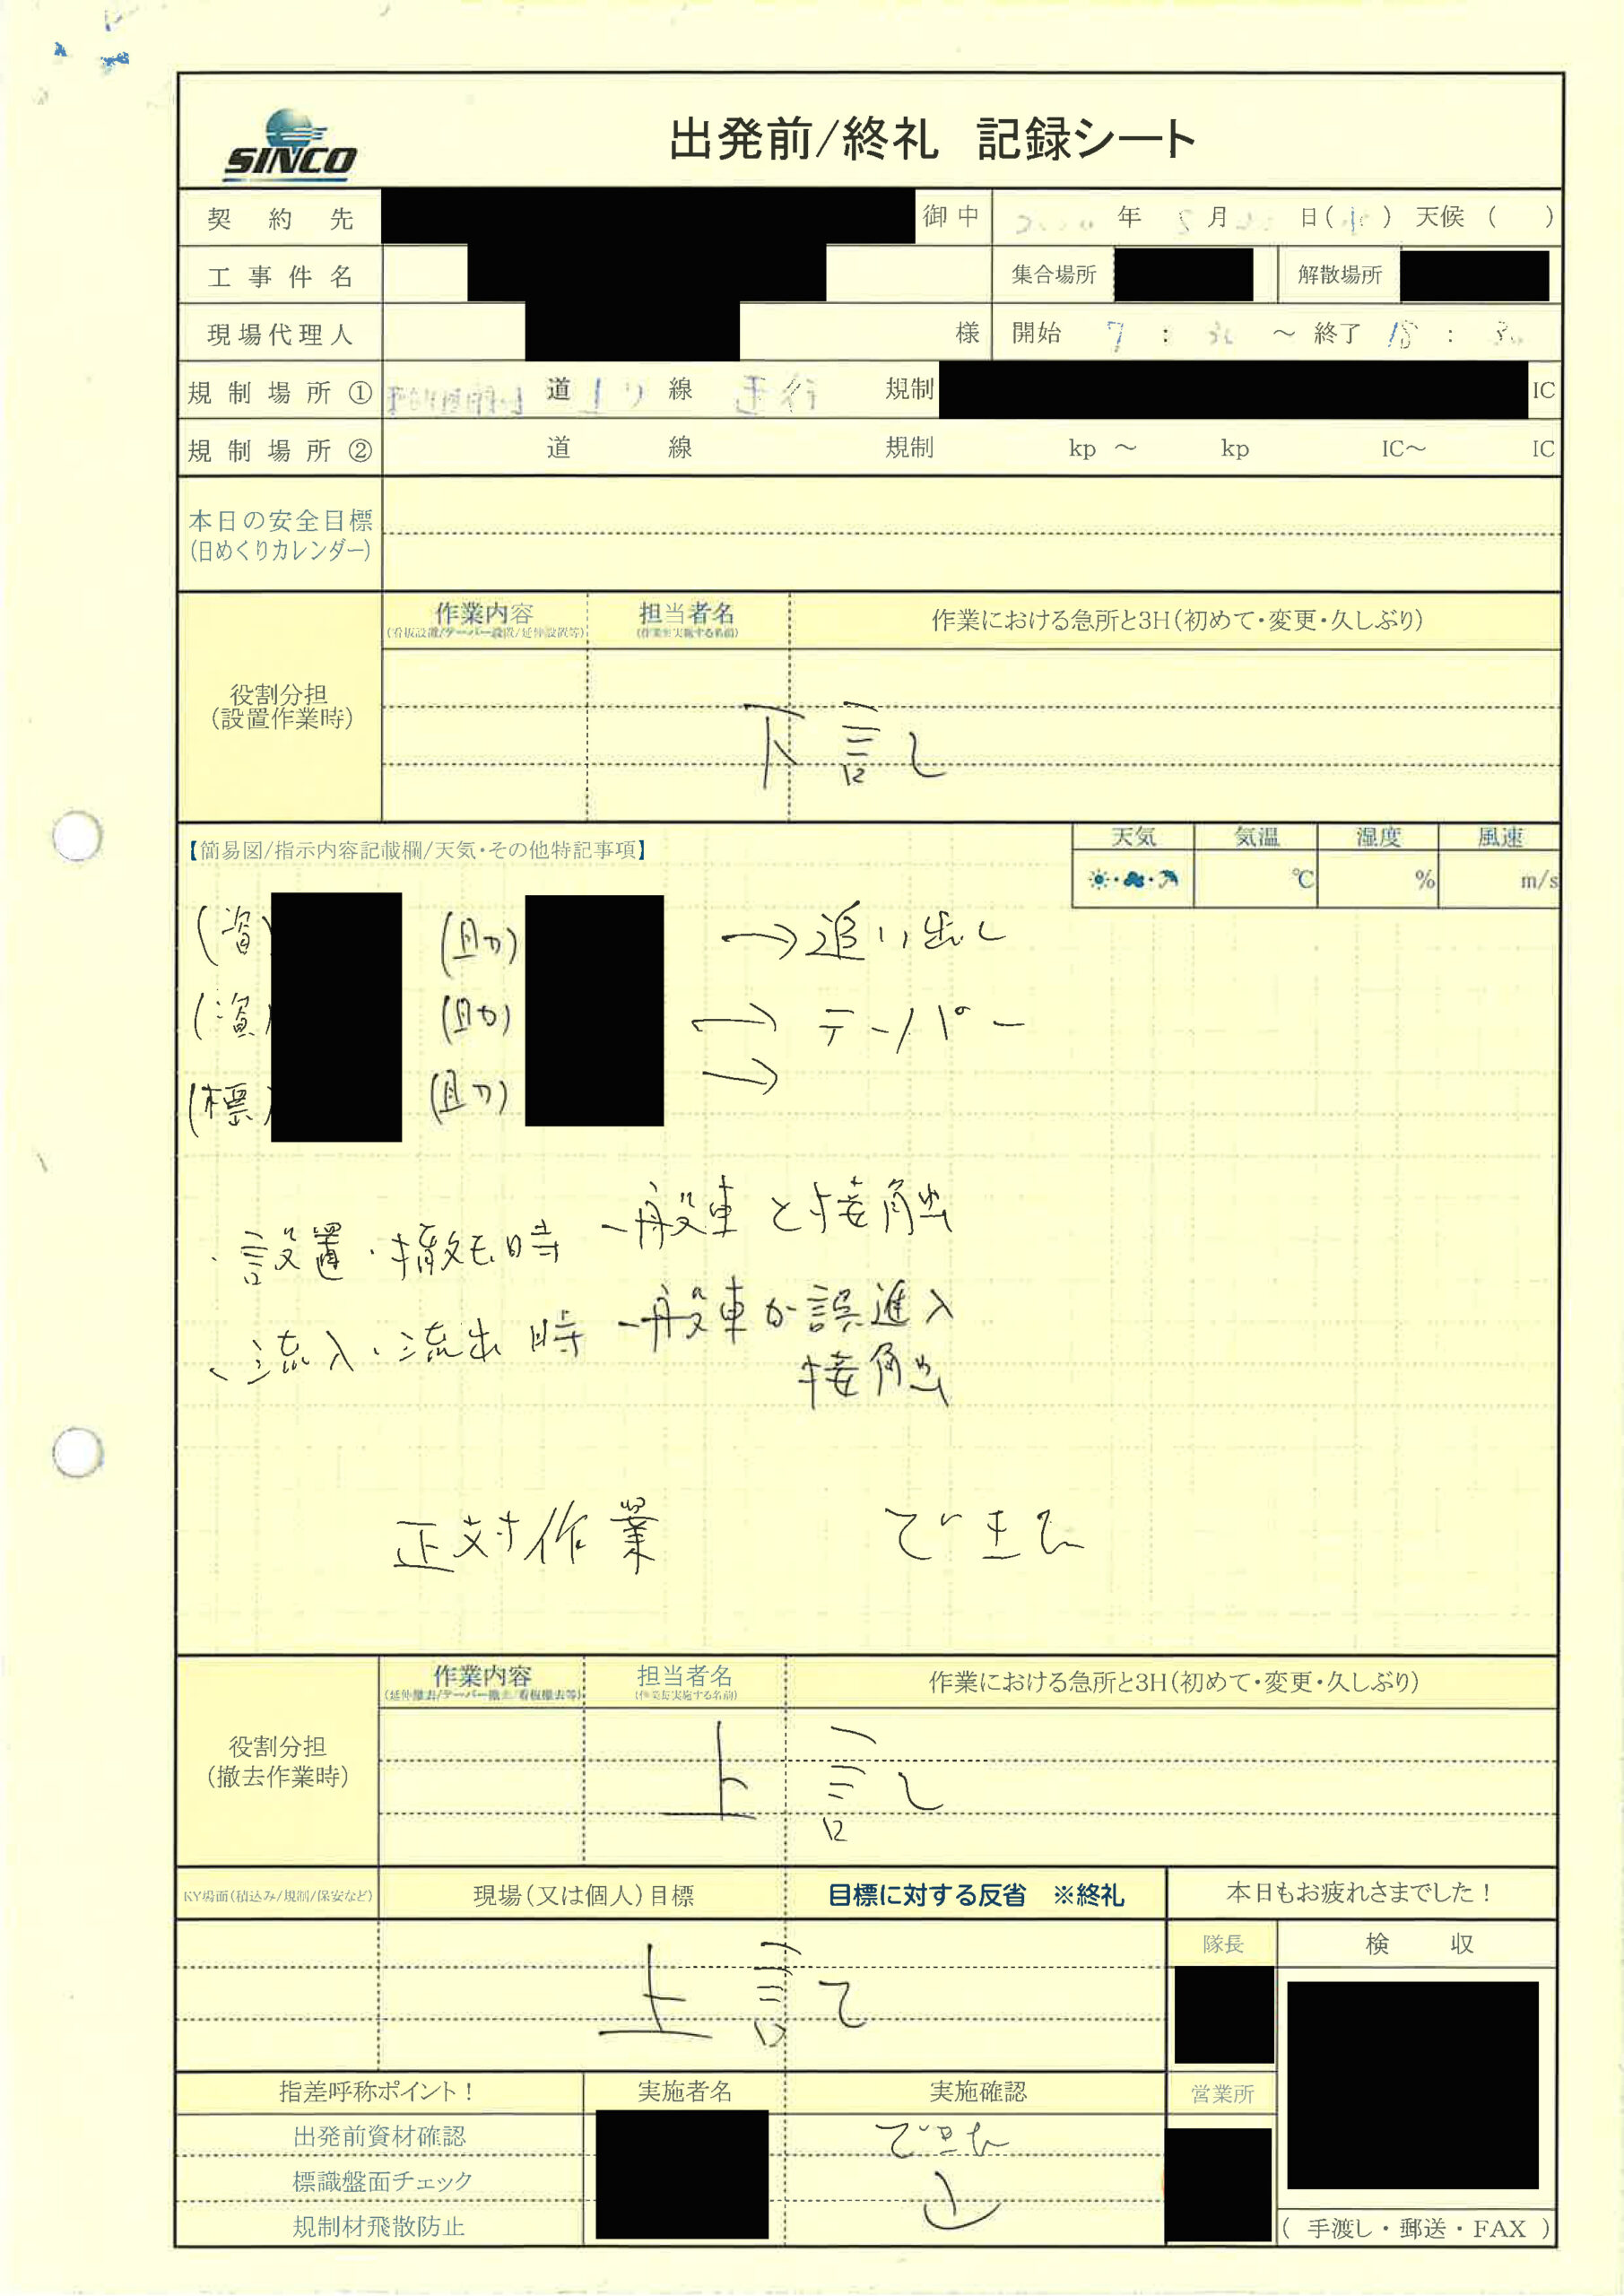 SINCO
出発前/終礼 記録シート
契約先 御中 年 月 日( ) 天候 ( )
工事件名 集合場所 解散場所
現場代理人 様 開始 7 : 30 ～ 終了 18 : 30
規制場所① 道 上り 線 規制 IC
規制場所② 道 線 規制 kp ～ kp IC～ IC
本日の安全目標
(日めくりカレンダー)
作業内容 担当者名 作業における急所と3H(初めて・変更・久しぶり)
(看板設置/テーパー設置/延伸設置等) (作業を実施する名前)
役割分担
(設置作業時)
下記
【簡易図/指示内容記載欄/天気・その他特記事項】
天気 気温 湿度 風速
℃ % m/s
(資) (助) → 追い出し
(資) (助) → テーパー
(標) (助) →
・設置・撤去時 一般車と接触
・流入・流出時 一般車が誤進入
接触
正対作業 できた
作業内容 担当者名 作業における急所と3H(初めて・変更・久しぶり)
(延伸撤去/テーパー撤去/看板撤去等) (作業を実施する名前)
役割分担
(撤去作業時)
上記
KY場面(積込み/規制/保安など) 現場(又は個人)目標 目標に対する反省 ※終礼 本日もお疲れさまでした！
隊長 検収
上記
指差呼称ポイント！ 実施者名 実施確認 営業所
出発前資材確認 できた
標識盤面チェック
規制材飛散防止
( 手渡し・郵送・FAX )